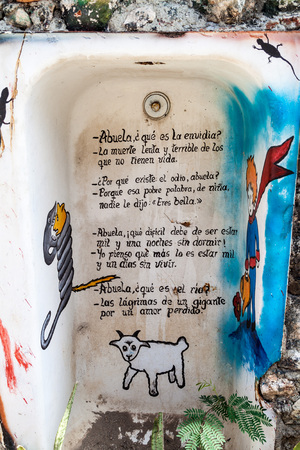 -Abuela, ¿qué es la envidia?
- La muerte lenta y terrible de los
que no tienen vida.
-¿Por qué existe el odio, abuela?
- Porque esa pobre palabra, de niña,
nadie le dijo: «Eres bella.»
-Abuela, ¡qué difícil debe de ser estar
mil y una noches sin dormir!
- Yo pienso que más lo es estar mil
y un días sin vivir.
-Abuela, ¿qué es el río?
- Las lágrimas de un gigante
por un amor perdido.